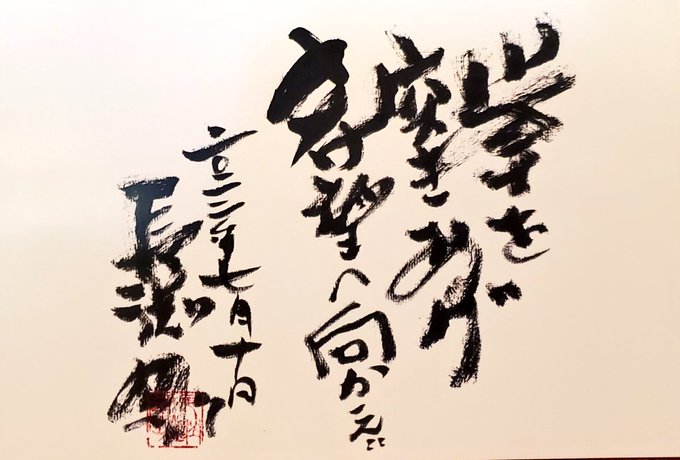 拳を
突きあげ
希望へ向かえ!!
二〇二二年七月十日
長渕剛